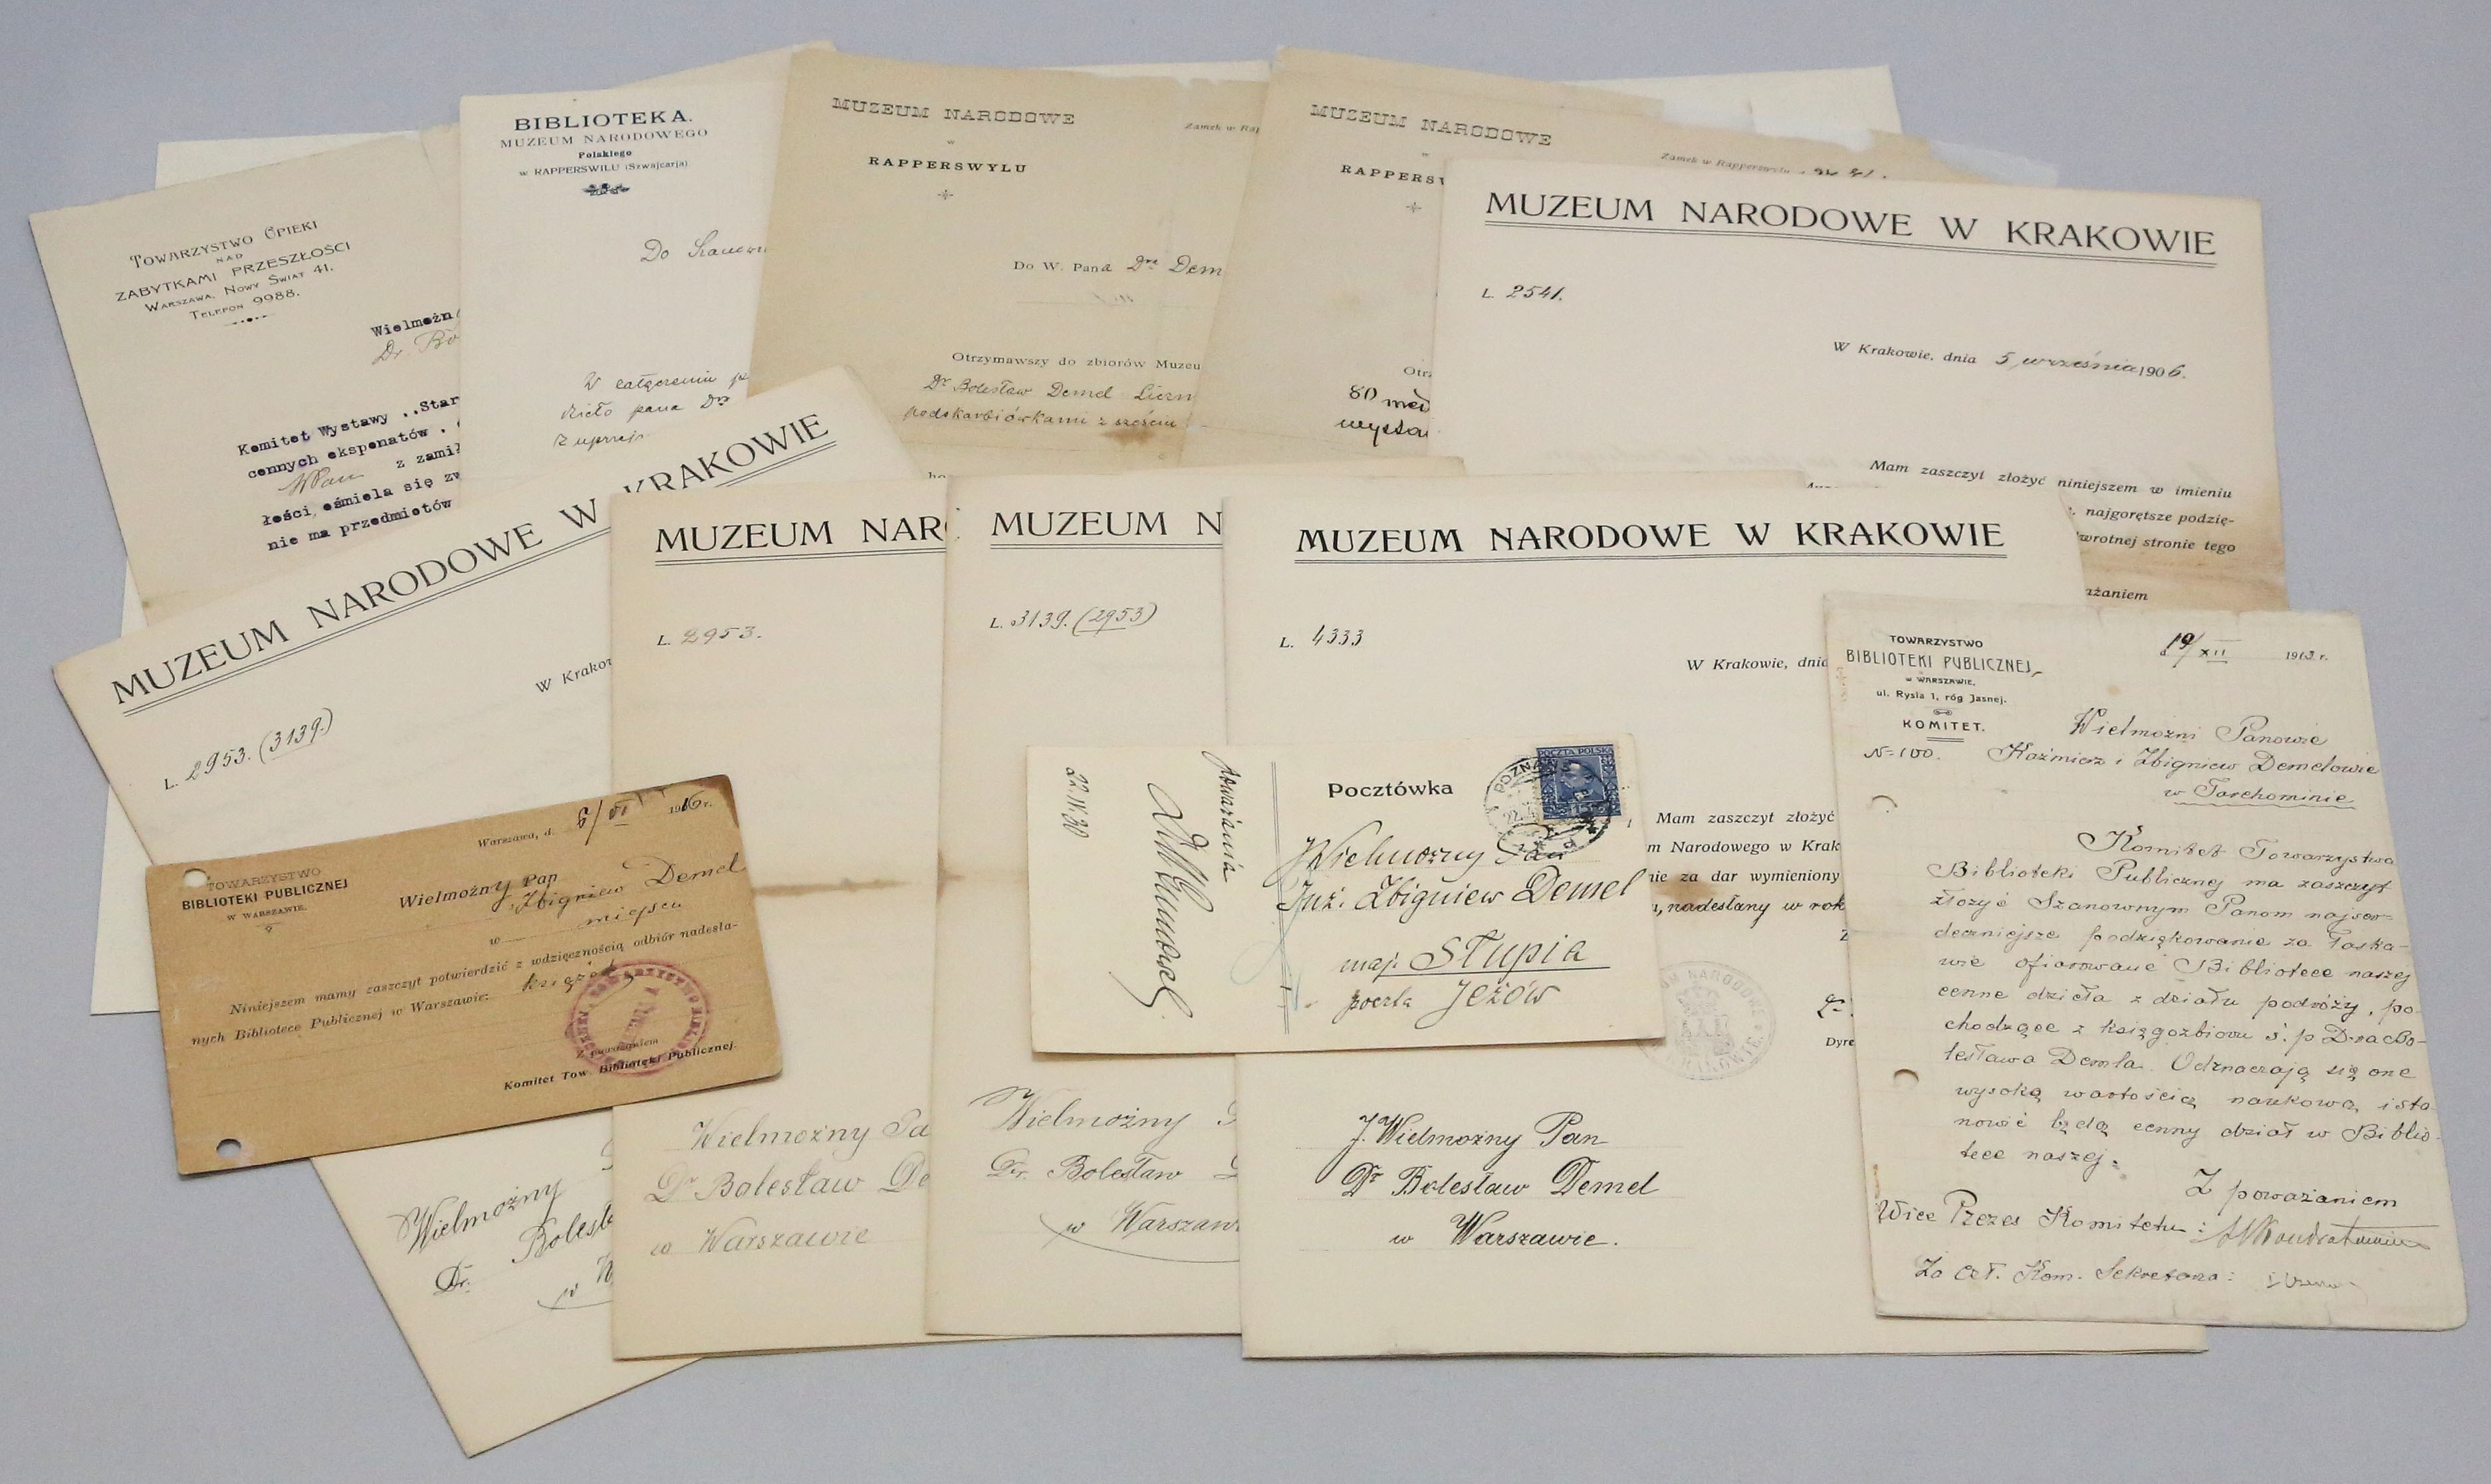 TOWARZYSTWO OPIEKI
NAD
ZABYTKAMI PRZESZŁOŚCI
WARSZAWA. NOWY ŚWIAT 41.
TELEFON 9988.
Wielmożn
Dr. Bo
Komitet Wystawy ,,Star
cennych eksponatów .
WPan z zamił
łości, ośmiela się zw
nie ma przedmiotów
BIBLIOTEKA.
MUZEUM NARODOWEGO
Polskiego
w RAPPERSWILU (Szwajcarja)
Do Szanown
W załączeniu
dzieło pana Dra
MUZEUM NARODOWE
w
RAPPERSWYLU
Zamek w Rap
Do W. Pana Dra Dem
Otrzymawszy do zbiorów Muzeu
Dr Bolesław Demel
podskarbiówkami z sześciu
MUZEUM NARODOWE
w
RAPPERSW
Zamek w Rapperswylu
Otrz
80 med
wysta
MUZEUM NARODOWE W KRAKOWIE
L. 2541.
W Krakowie, dnia 5 września 1906.
Mam zaszczyt złożyć niniejszem w imieniu
najgorętsze podzię-
wrotnej stronie tego
ażaniem
MUZEUM NARODOWE W KRAKOWIE
W Krakow
L. 2953. (3139.)
Wielmożny
Dr. Bolesł
w W
MUZEUM NAR
L. 2953.
Wielmożny Pa
Dr Bolesław De
w Warszawie
MUZEUM N
L. 3139. (2953)
Wielmożny
Dr. Bolesław
w Warszaw
MUZEUM NARODOWE W KRAKOWIE
L. 4333
W Krakowie, dnia
Mam zaszczyt złożyć
m Narodowego w Krak
nie za dar wymieniony
nadesłany w rok
Dyre
J.Wielmożny Pan
Dr Bolesław Demel
w Warszawie.
Warszawa, d. 6/VI 1916 r.
TOWARZYSTWO
BIBLIOTEKI PUBLICZNEJ
W WARSZAWIE.
Wielmożny Pan
Zbigniew Demel
w miejscu
Niniejszem mamy zaszczyt potwierdzić z wdzięcznością odbiór nadesła-
nych Bibliotece Publicznej w Warszawie:
Z poważaniem
Komitet Tow. Biblioteki Publicznej.
22.IV.30
poważania
Pocztówka
POCZTA POLSKA
POZNAŃ
Wielmożny Pan
Inż. Zbigniew Demel
maj. Słupia
poczta Jeżów
TOWARZYSTWO
BIBLIOTEKI PUBLICZNEJ
w WARSZAWIE,
ul. Rysia 1, róg Jasnej.
KOMITET.
d 19/XII 1912 r.
N= 100.
Wielmożni Panowie
Kaźmierz i Zbigniew Demelowie
w Tarchominie
Komitet Towarzystwa
Biblioteki Publicznej ma zaszczyt
złożyć Szanownym Panom najser-
deczniejsze podziękowanie za łaska-
wie ofiarowane Bibliotece naszej
cenne dzieła z działu podróży, po-
chodzące z księgozbioru ś. p D-ra Bo-
lesława Demla. Odznaczają się one
wysoką wartością naukową i sta-
nowić będą cenny dział w Biblio-
tece naszej.
Z poważaniem
Wice Prezes Komitetu:
Za czł. Kom. Sekretarza: